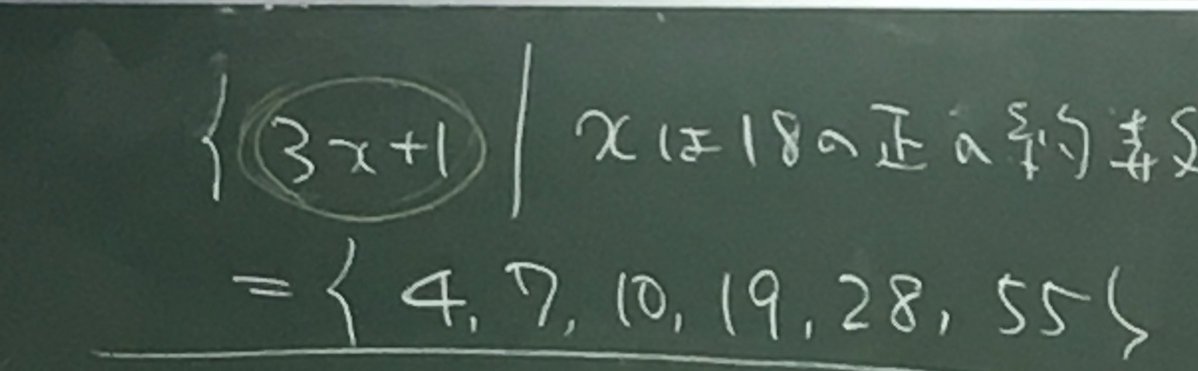 { 3x+1 | xは18の正の約数
= { 4, 7, 10, 19, 28, 55 }